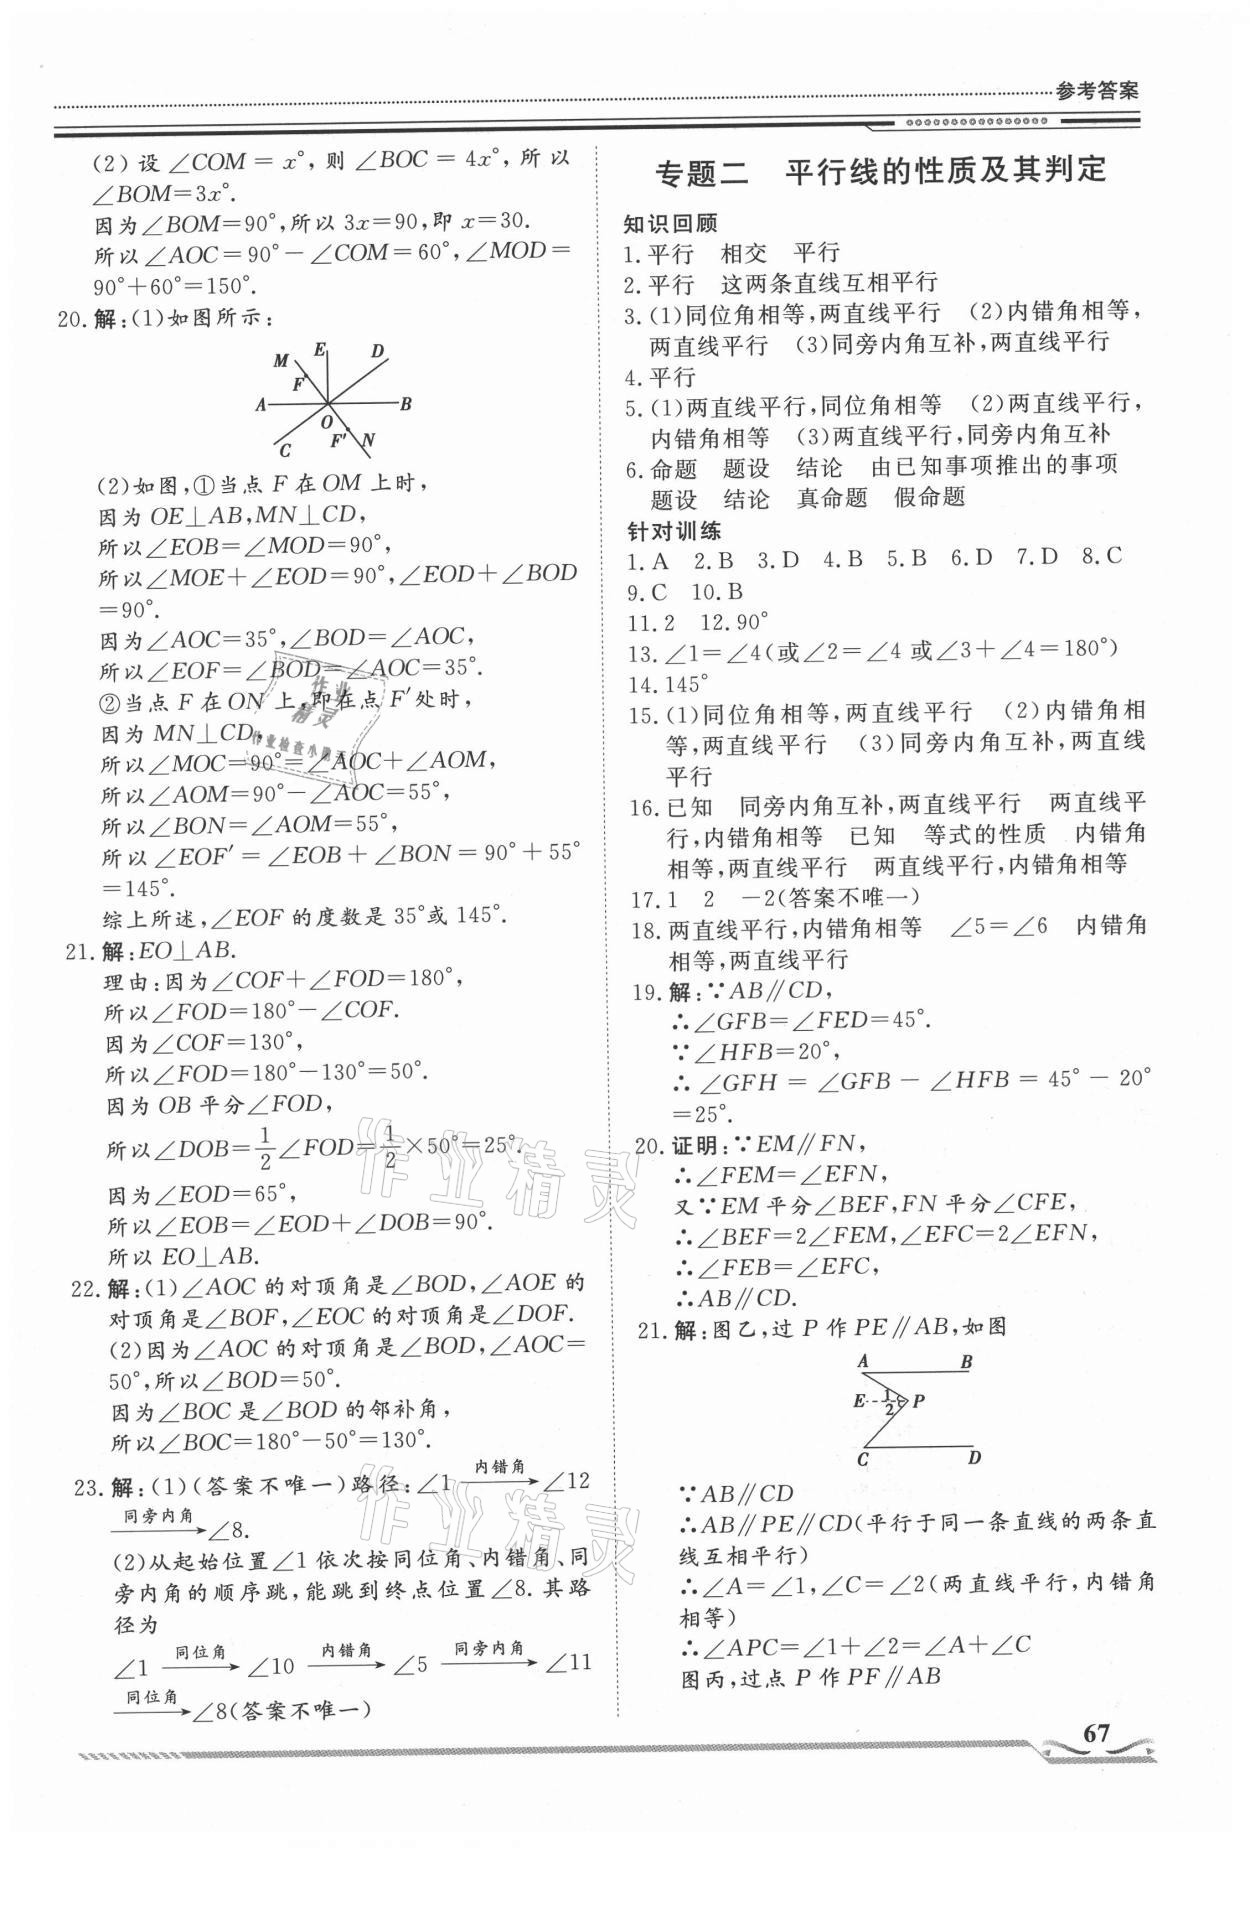 参考答案
(2)设∠COM=x°,则∠BOC=4x°,所以
∠BOM=3x°.
因为∠BOM=90°,所以3x=90,即x=30.
所以∠AOC=90°-∠COM=60°,∠MOD=
90°+60°=150°.
20.解:(1)如图所示:
M E D
F
A B
O
C F′ N
(2)如图,①当点F在OM上时,
因为OE⊥AB,MN⊥CD,
所以∠EOB=∠MOD=90°,
所以∠MOE+∠EOD=90°,∠EOD+∠BOD
=90°.
因为∠AOC=35°,∠BOD=∠AOC,
所以∠EOF=∠BOD=∠AOC=35°.
②当点F在ON上,即在点F′处时,
因为MN⊥CD,
所以∠MOC=90°=∠AOC+∠AOM,
所以∠AOM=90°-∠AOC=55°,
所以∠BON=∠AOM=55°,
所以∠EOF′=∠EOB+∠BON=90°+55°
=145°.
综上所述,∠EOF的度数是35°或145°.
21.解:EO⊥AB.
理由:因为∠COF+∠FOD=180°,
所以∠FOD=180°-∠COF.
因为∠COF=130°,
所以∠FOD=180°-130°=50°.
因为OB平分∠FOD,
所以∠DOB=1/2∠FOD=1/2×50°=25°.
因为∠EOD=65°,
所以∠EOB=∠EOD+∠DOB=90°.
所以EO⊥AB.
22.解:(1)∠AOC的对顶角是∠BOD,∠AOE的
对顶角是∠BOF,∠EOC的对顶角是∠DOF.
(2)因为∠AOC的对顶角是∠BOD,∠AOC=
50°,所以∠BOD=50°.
因为∠BOC是∠BOD的邻补角,
所以∠BOC=180°-50°=130°.
23.解:(1)(答案不唯一)路径:∠1 内错角→ ∠12
同旁内角→ ∠8.
(2)从起始位置∠1依次按同位角、内错角、同
旁内角的顺序跳,能跳到终点位置∠8.其路
径为
∠1 同位角→ ∠10 内错角→ ∠5 同旁内角→ ∠11
同位角→ ∠8(答案不唯一)
专题二 平行线的性质及其判定
知识回顾
1.平行 相交 平行
2.平行 这两条直线互相平行
3.(1)同位角相等,两直线平行 (2)内错角相等,
两直线平行 (3)同旁内角互补,两直线平行
4.平行
5.(1)两直线平行,同位角相等 (2)两直线平行,
内错角相等 (3)两直线平行,同旁内角互补
6.命题 题设 结论 由已知事项推出的事项
题设 结论 真命题 假命题
针对训练
1.A 2.B 3.D 4.B 5.B 6.D 7.D 8.C
9.C 10.B
11.2 12.90°
13.∠1=∠4(或∠2=∠4或∠3+∠4=180°)
14.145°
15.(1)同位角相等,两直线平行 (2)内错角相
等,两直线平行 (3)同旁内角互补,两直线
平行
16.已知 同旁内角互补,两直线平行 两直线平
行,内错角相等 已知 等式的性质 内错角
相等,两直线平行 两直线平行,内错角相等
17.1 2 -2(答案不唯一)
18.两直线平行,内错角相等 ∠5=∠6 内错角
相等,两直线平行
19.解:∵AB∥CD,
∴∠GFB=∠FED=45°.
∵∠HFB=20°,
∴∠GFH=∠GFB-∠HFB=45°-20°
=25°.
20.证明:∵EM∥FN,
∴∠FEM=∠EFN,
又∵EM平分∠BEF,FN平分∠CFE,
∴∠BEF=2∠FEM,∠EFC=2∠EFN,
∴∠FEB=∠EFC,
∴AB∥CD.
21.解:图乙,过P作PE∥AB,如图
A B
E 1 2 P
C D
∵AB∥CD
∴AB∥PE∥CD(平行于同一条直线的两条直
线互相平行)
∴∠A=∠1,∠C=∠2(两直线平行,内错角
相等)
∴∠APC=∠1+∠2=∠A+∠C
图丙,过点P作PF∥AB
67
作业精灵
作业精灵
作业
精灵